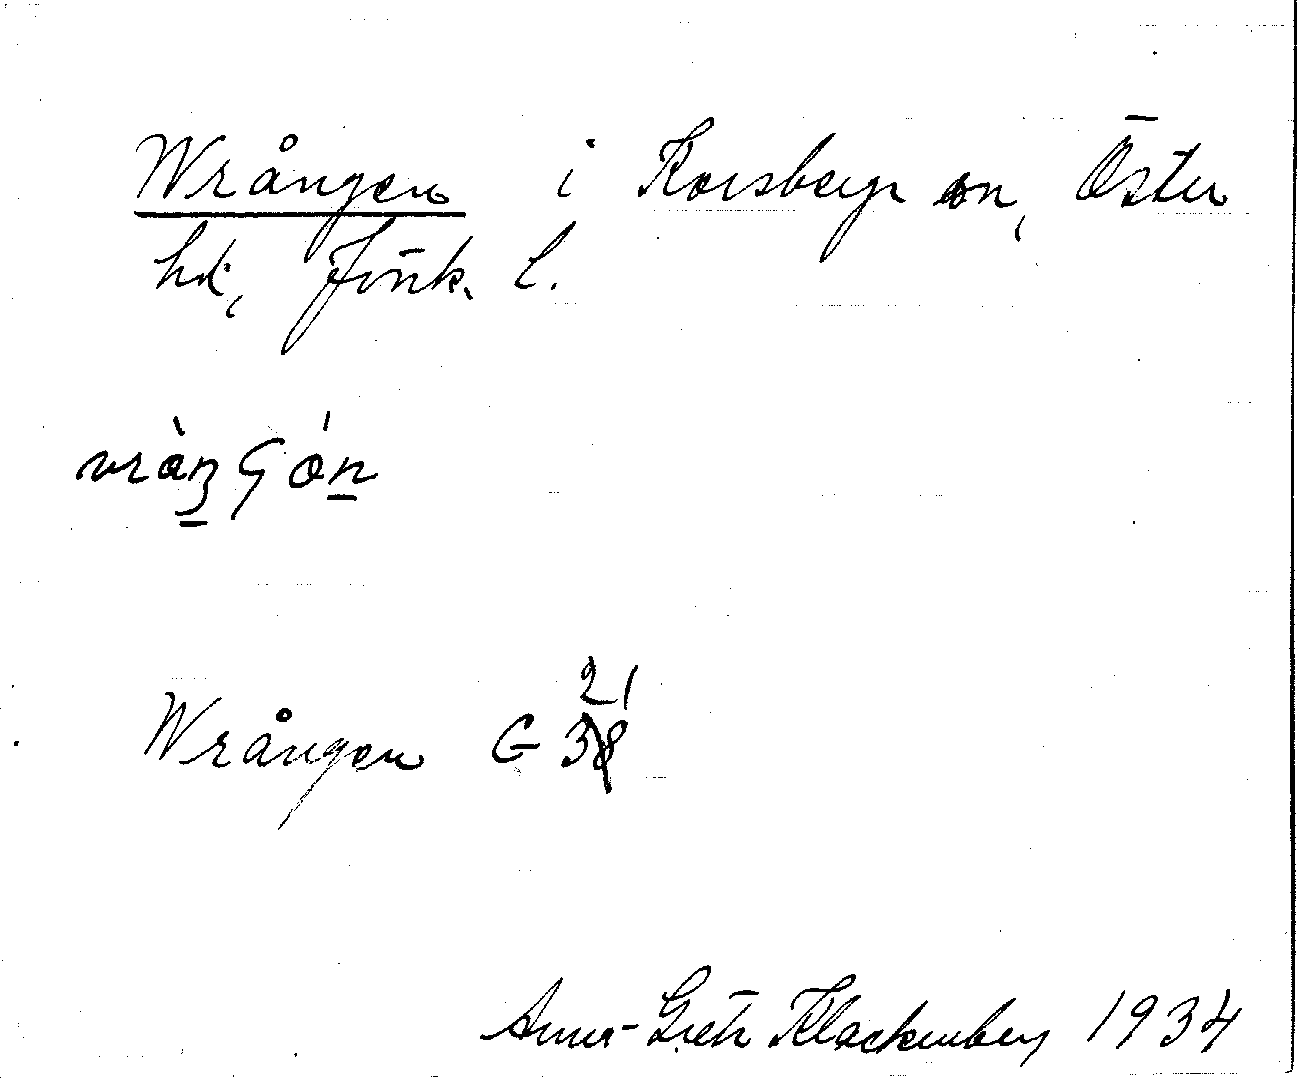 Wrången i Korsberga sn, Östra
hd, Jönk. l.
Wrången G 38
21
Anna-Greta Klackenberg 1934